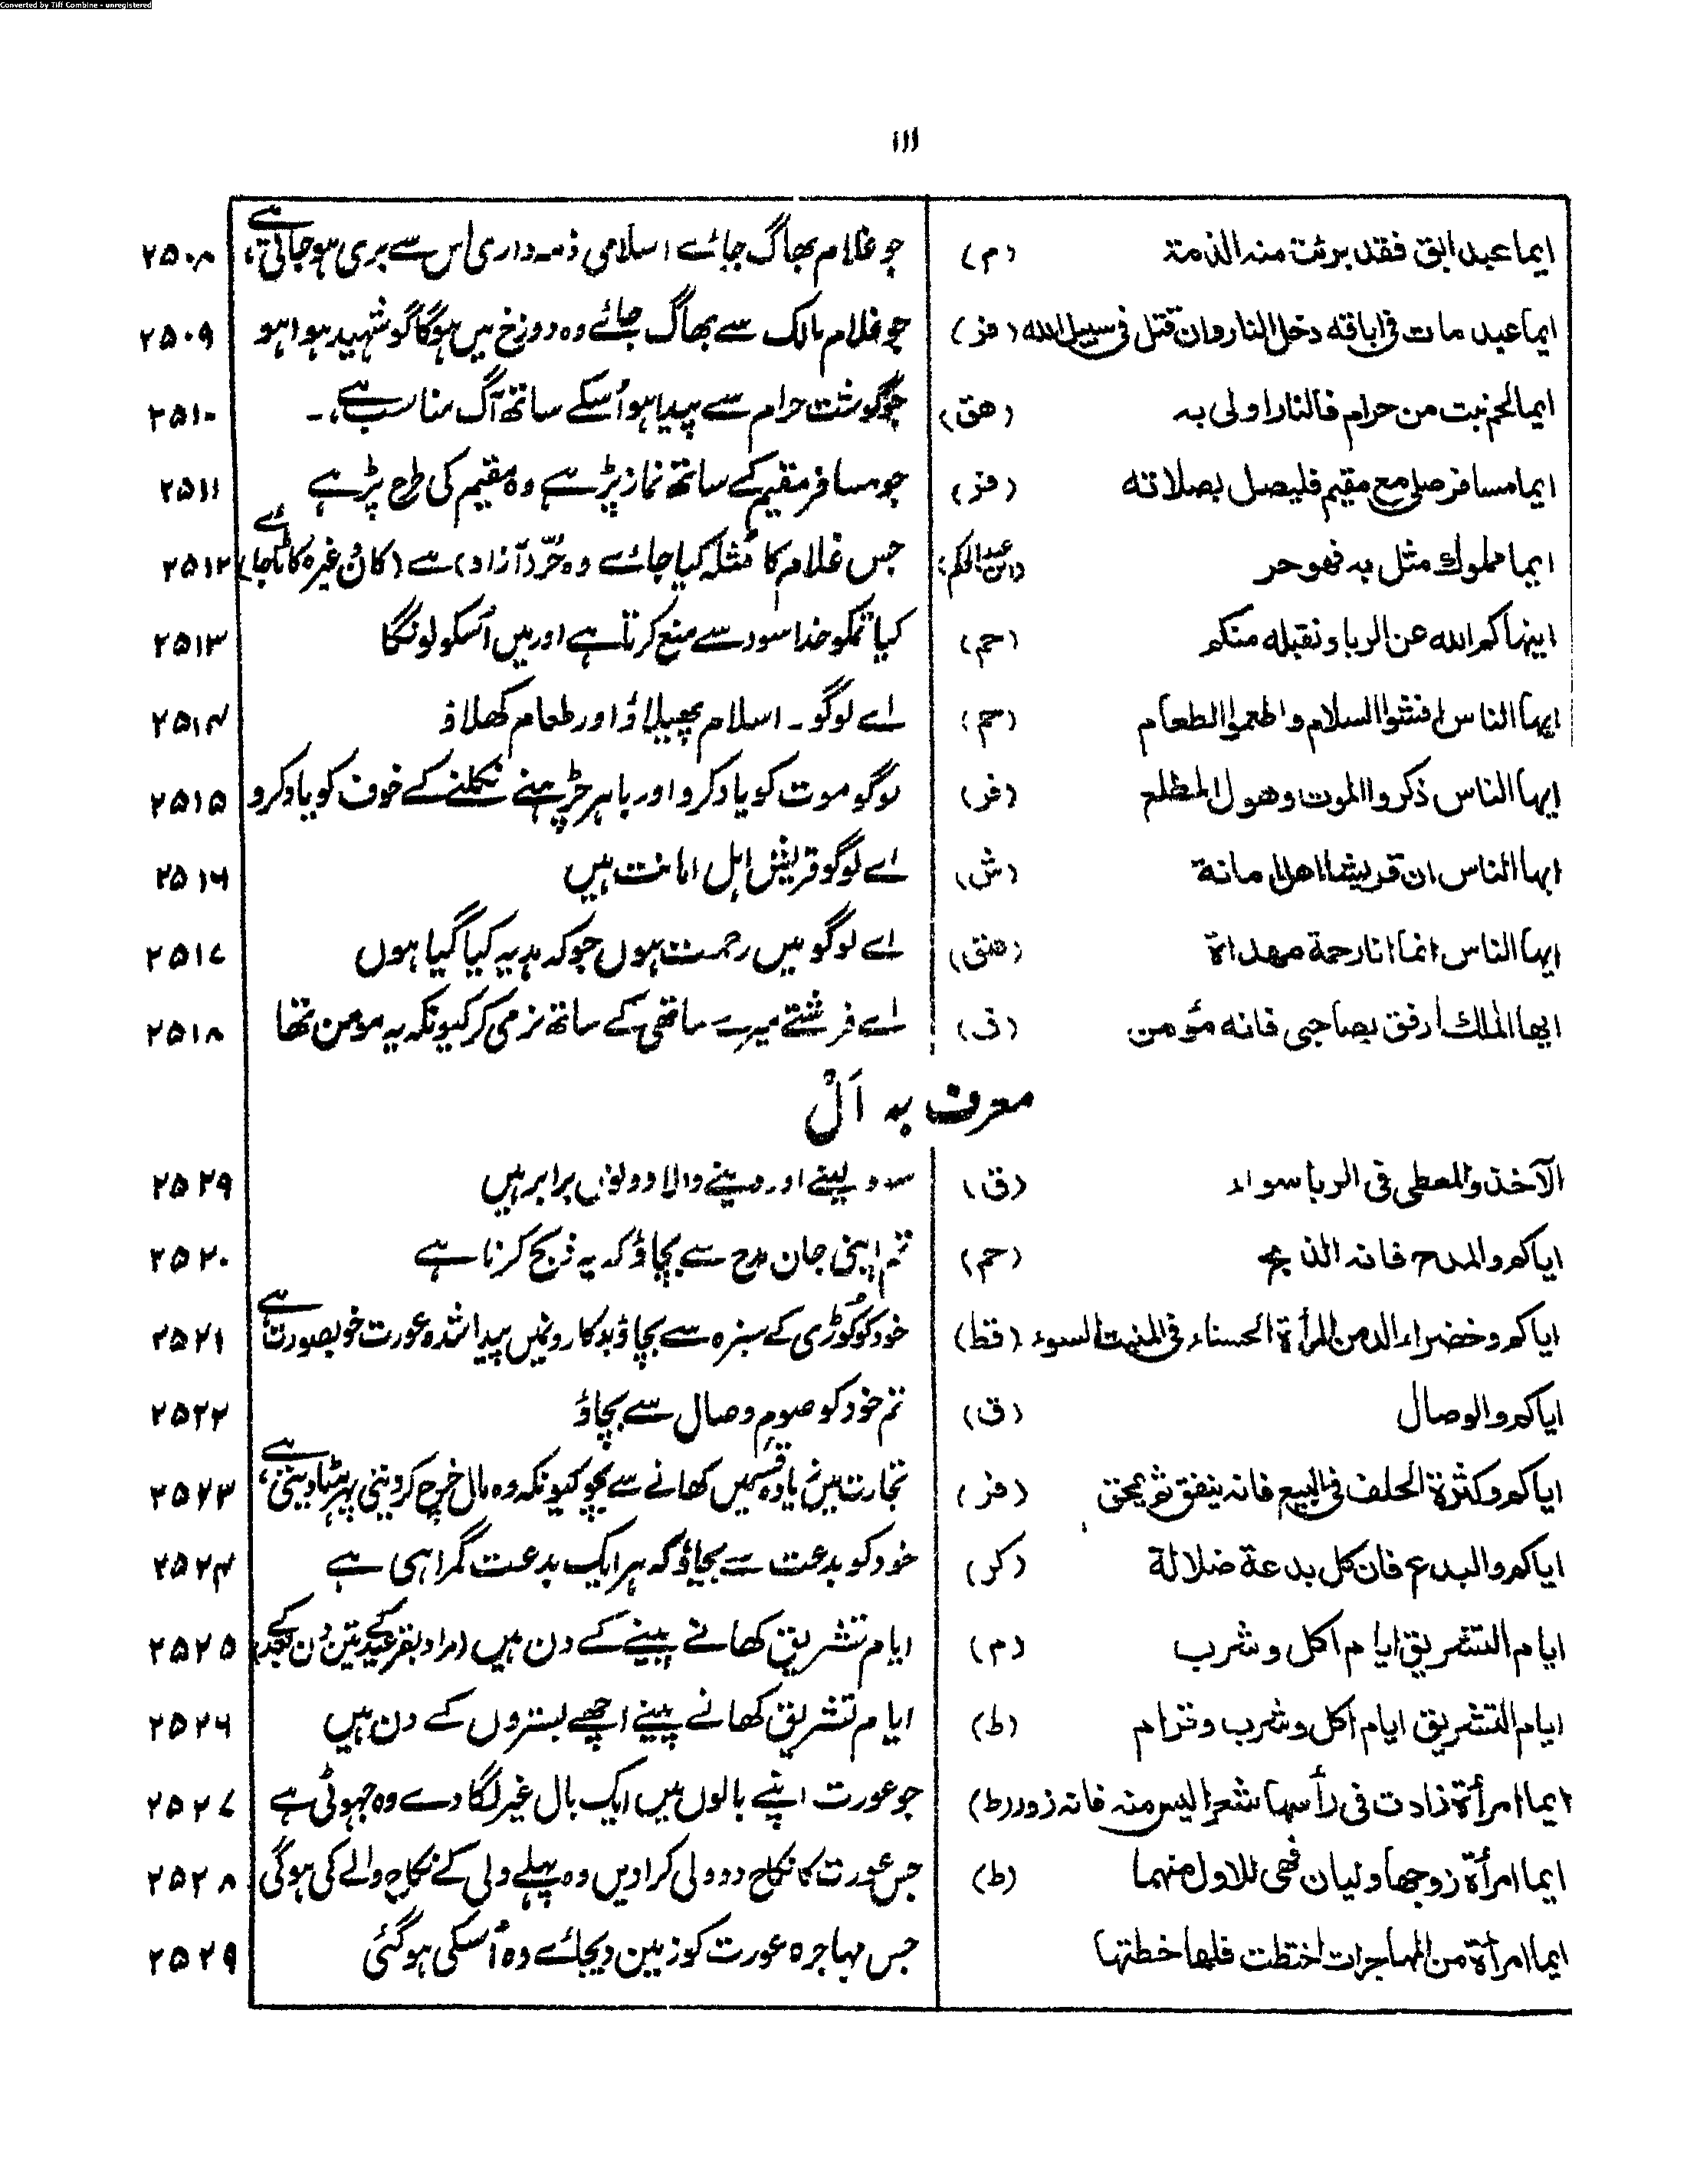 Converted by Tiff Combine - unregistered
۱۱۱
ایما عبد ابق فقد برئت منه الذمة (م) جو غلام بھاگ جائے اسلامی ذمہ داری اس سے بری ہو جاتی ہے ۲۵۰۸
ایما عبد مات فی اباقه دخل النار وان قتل فی سبیل الله (فز) جو غلام مالک سے بھاگ جائے وہ دوزخ میں ہوگا گو شہید ہوا ہو ۲۵۰۹
ایما لحم نبت من حرام فالنار اولی به (هق) جو گوشت حرام سے پیدا ہو اُسکے ساتھ آگ مناسب ہے۔ ۲۵۱۰
ایما مسافر صلی مع مقیم فلیصل بصلاته (فز) جو مسافر مقیم کے ساتھ نماز پڑہے وہ مقیم کی طرح پڑہے ۲۵۱۱
ایما مملوك مثل به فهو حر (ابن عبد الحکم) جس غلام کا مُثلہ کیا جائے وہ حُر (آزاد) ہے (کان وغیرہ کاٹا جائے) ۲۵۱۲
اینهاکم الله عن الربا ونقبله منکم (حم) کیا تمکو خدا سود سے منع کرتا ہے اور میں اُسکو لونگا ۲۵۱۳
ایها الناس افشوا السلام واطعموا الطعام (حم) اے لوگو۔ اسلام پھیلاؤ اور طعام کھلاؤ ۲۵۱۴
ایها الناس ذکروا الموت وهول المطلع (فر) لوگو موت کو یاد کرو اور باہر چڑہنے نکلنے کے خوف کو یاد کرو ۲۵۱۵
ایها الناس ان قریشا اهل امانة (ش) اے لوگو قریش اہل امانت ہیں ۲۵۱۶
ایها الناس انما انا رحمة مهداة (هق) اے لوگو میں رحمت ہوں جو کہ ہدیہ کیا گیا ہوں ۲۵۱۷
ایها الملك ارفق بصاحبی فانه مؤمن (ف) اے فرشتے میرے ساتھی کے ساتھ نرمی کر کیونکہ یہ مومن تھا ۲۵۱۸
معرف به اَلْ
الآخذ والمعطی فی الربا سواء (ق) سود لینے اور دینے والا دونوں برابر ہیں ۲۵۲۹
ایاکم والمدح فانه الذبح (حم) تم اپنی جان مدح سے بچاؤ کہ یہ ذبح کرنا ہے ۲۵۲۰
ایاکم وخضراء الدمن المرأة الحسناء فی المنبت السوء (قط) خود کو کُوڑی کے سبزہ سے بچاؤ بدکارونمیں پیدا شدہ عورت خوبصورت ہے ۲۵۲۱
ایاکم والوصال (ق) تم خود کو صوم وصال سے بچاؤ ۲۵۲۲
ایاکم وکثرة الحلف فی البیع فانه ینفق ثم یمحق (فز) تجارت میں زیادہ قسمیں کھانے سے بچو کیونکہ وہ مال خرچ کردیتی پہر مٹا دیتی ہے ۲۵۲۳
ایاکم والبدع فان کل بدعة ضلالة (کر) خود کو بدعت سے بچاؤ کہ ہر ایک بدعت گمراہی ہے ۲۵۲۴
ایام التشریق ایام اکل وشرب (م) ایام تشریق کھانے پینے کے دن ہیں (مراد بقرعید کے تین دن بعد کے) ۲۵۲۵
ایام التشریق ایام اکل وشرب وقرام (ط) ایام تشریق کھانے پینے اچھے بستروں کے دن ہیں ۲۵۲۶
ایما امرأة زادت فی رأسها شعرا لیس منه فانه زور (ط) جو عورت اپنے بالوں میں ایک بال غیر لگا دے وہ جہوٹی ہے ۲۵۲۷
ایما امرأة زوجها ولیان فهی للاول منهما (ط) جس عورت کا نکاح دو ولی کرادیں وہ پہلے ولی کے نکاح والے کی ہوگی ۲۵۲۸
ایما امرأة من المهاجرات اختطت فلها خطتها جس مہاجرہ عورت کو زمین دیجائے وہ اُسکی ہوگئی ۲۵۲۹